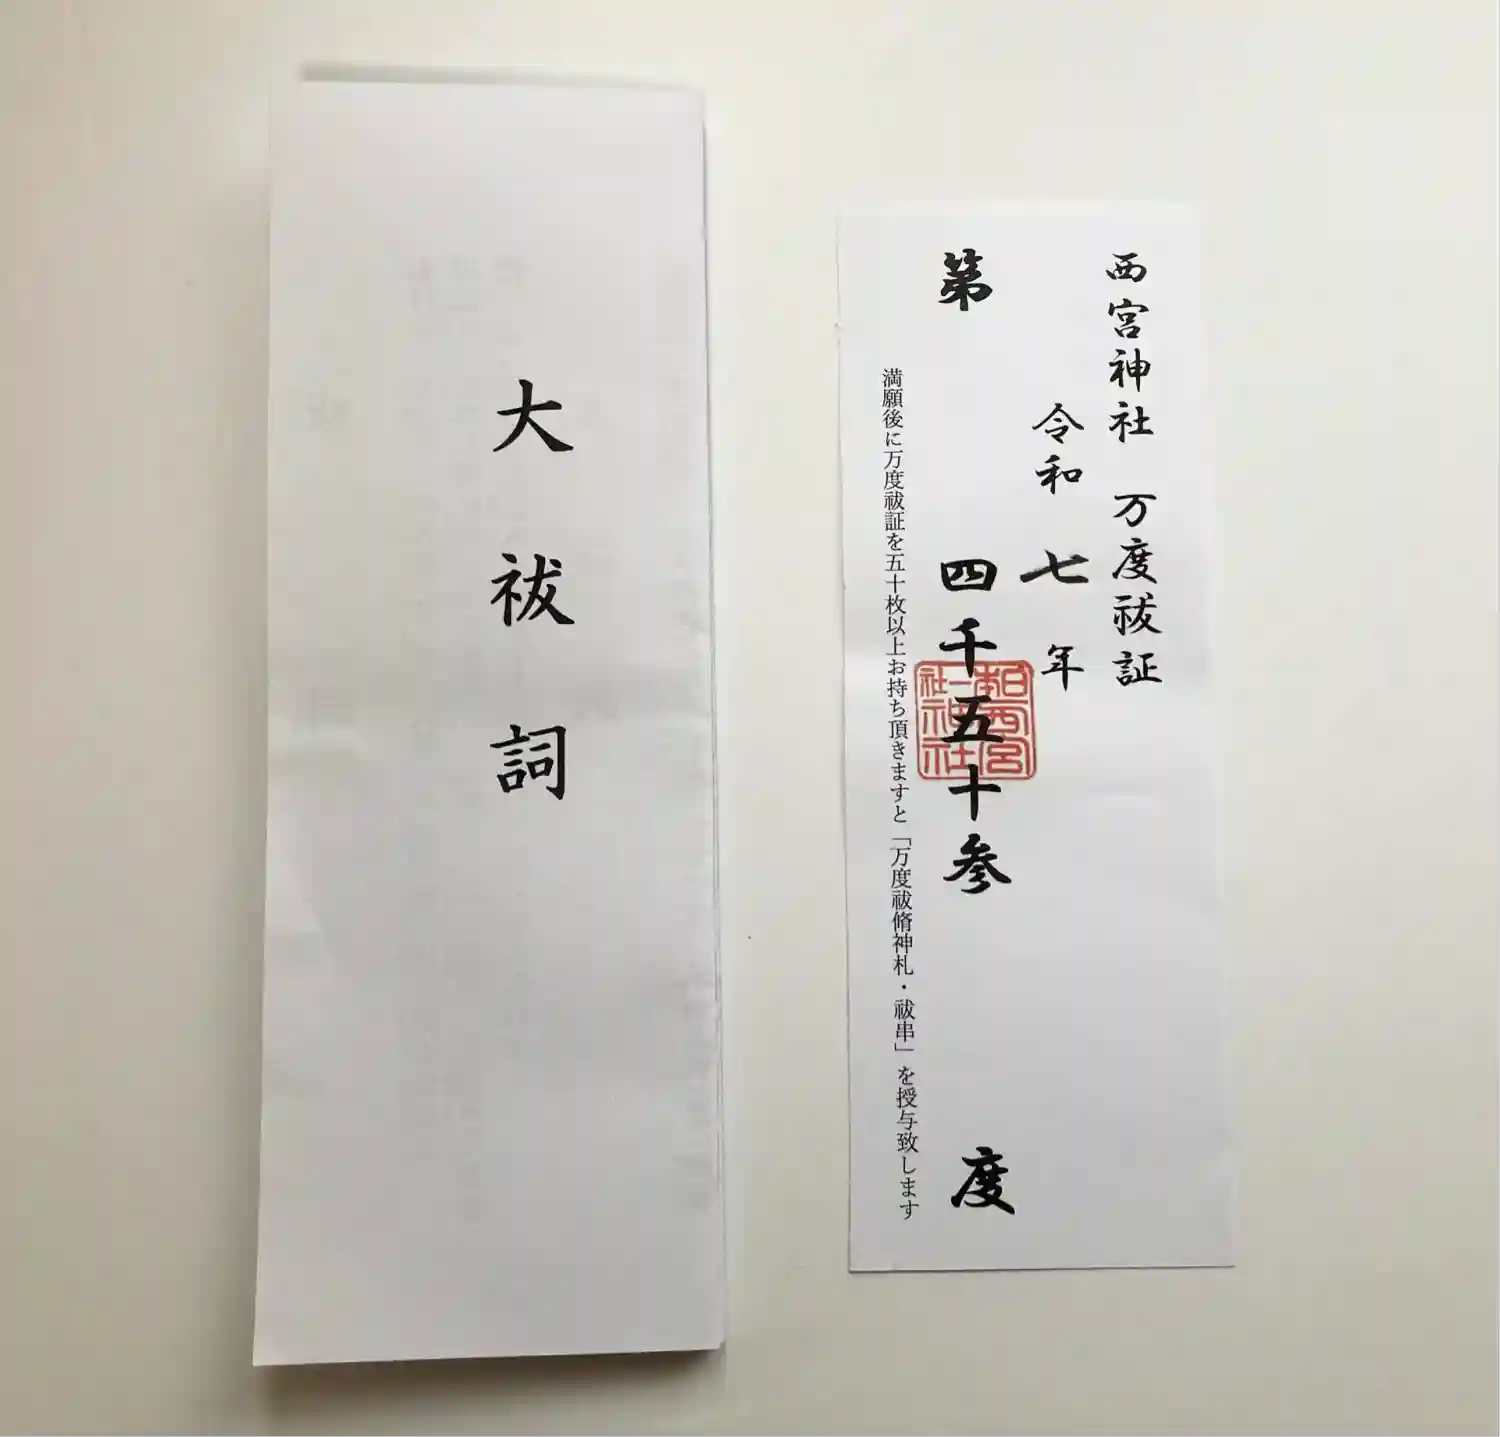 大祓詞
西宮神社 万度祓証
令和七年
第 四千五十参 度
満願後に万度祓証を五十枚以上お持ち頂きますと「万度祓脩神札・祓串」を授与致します